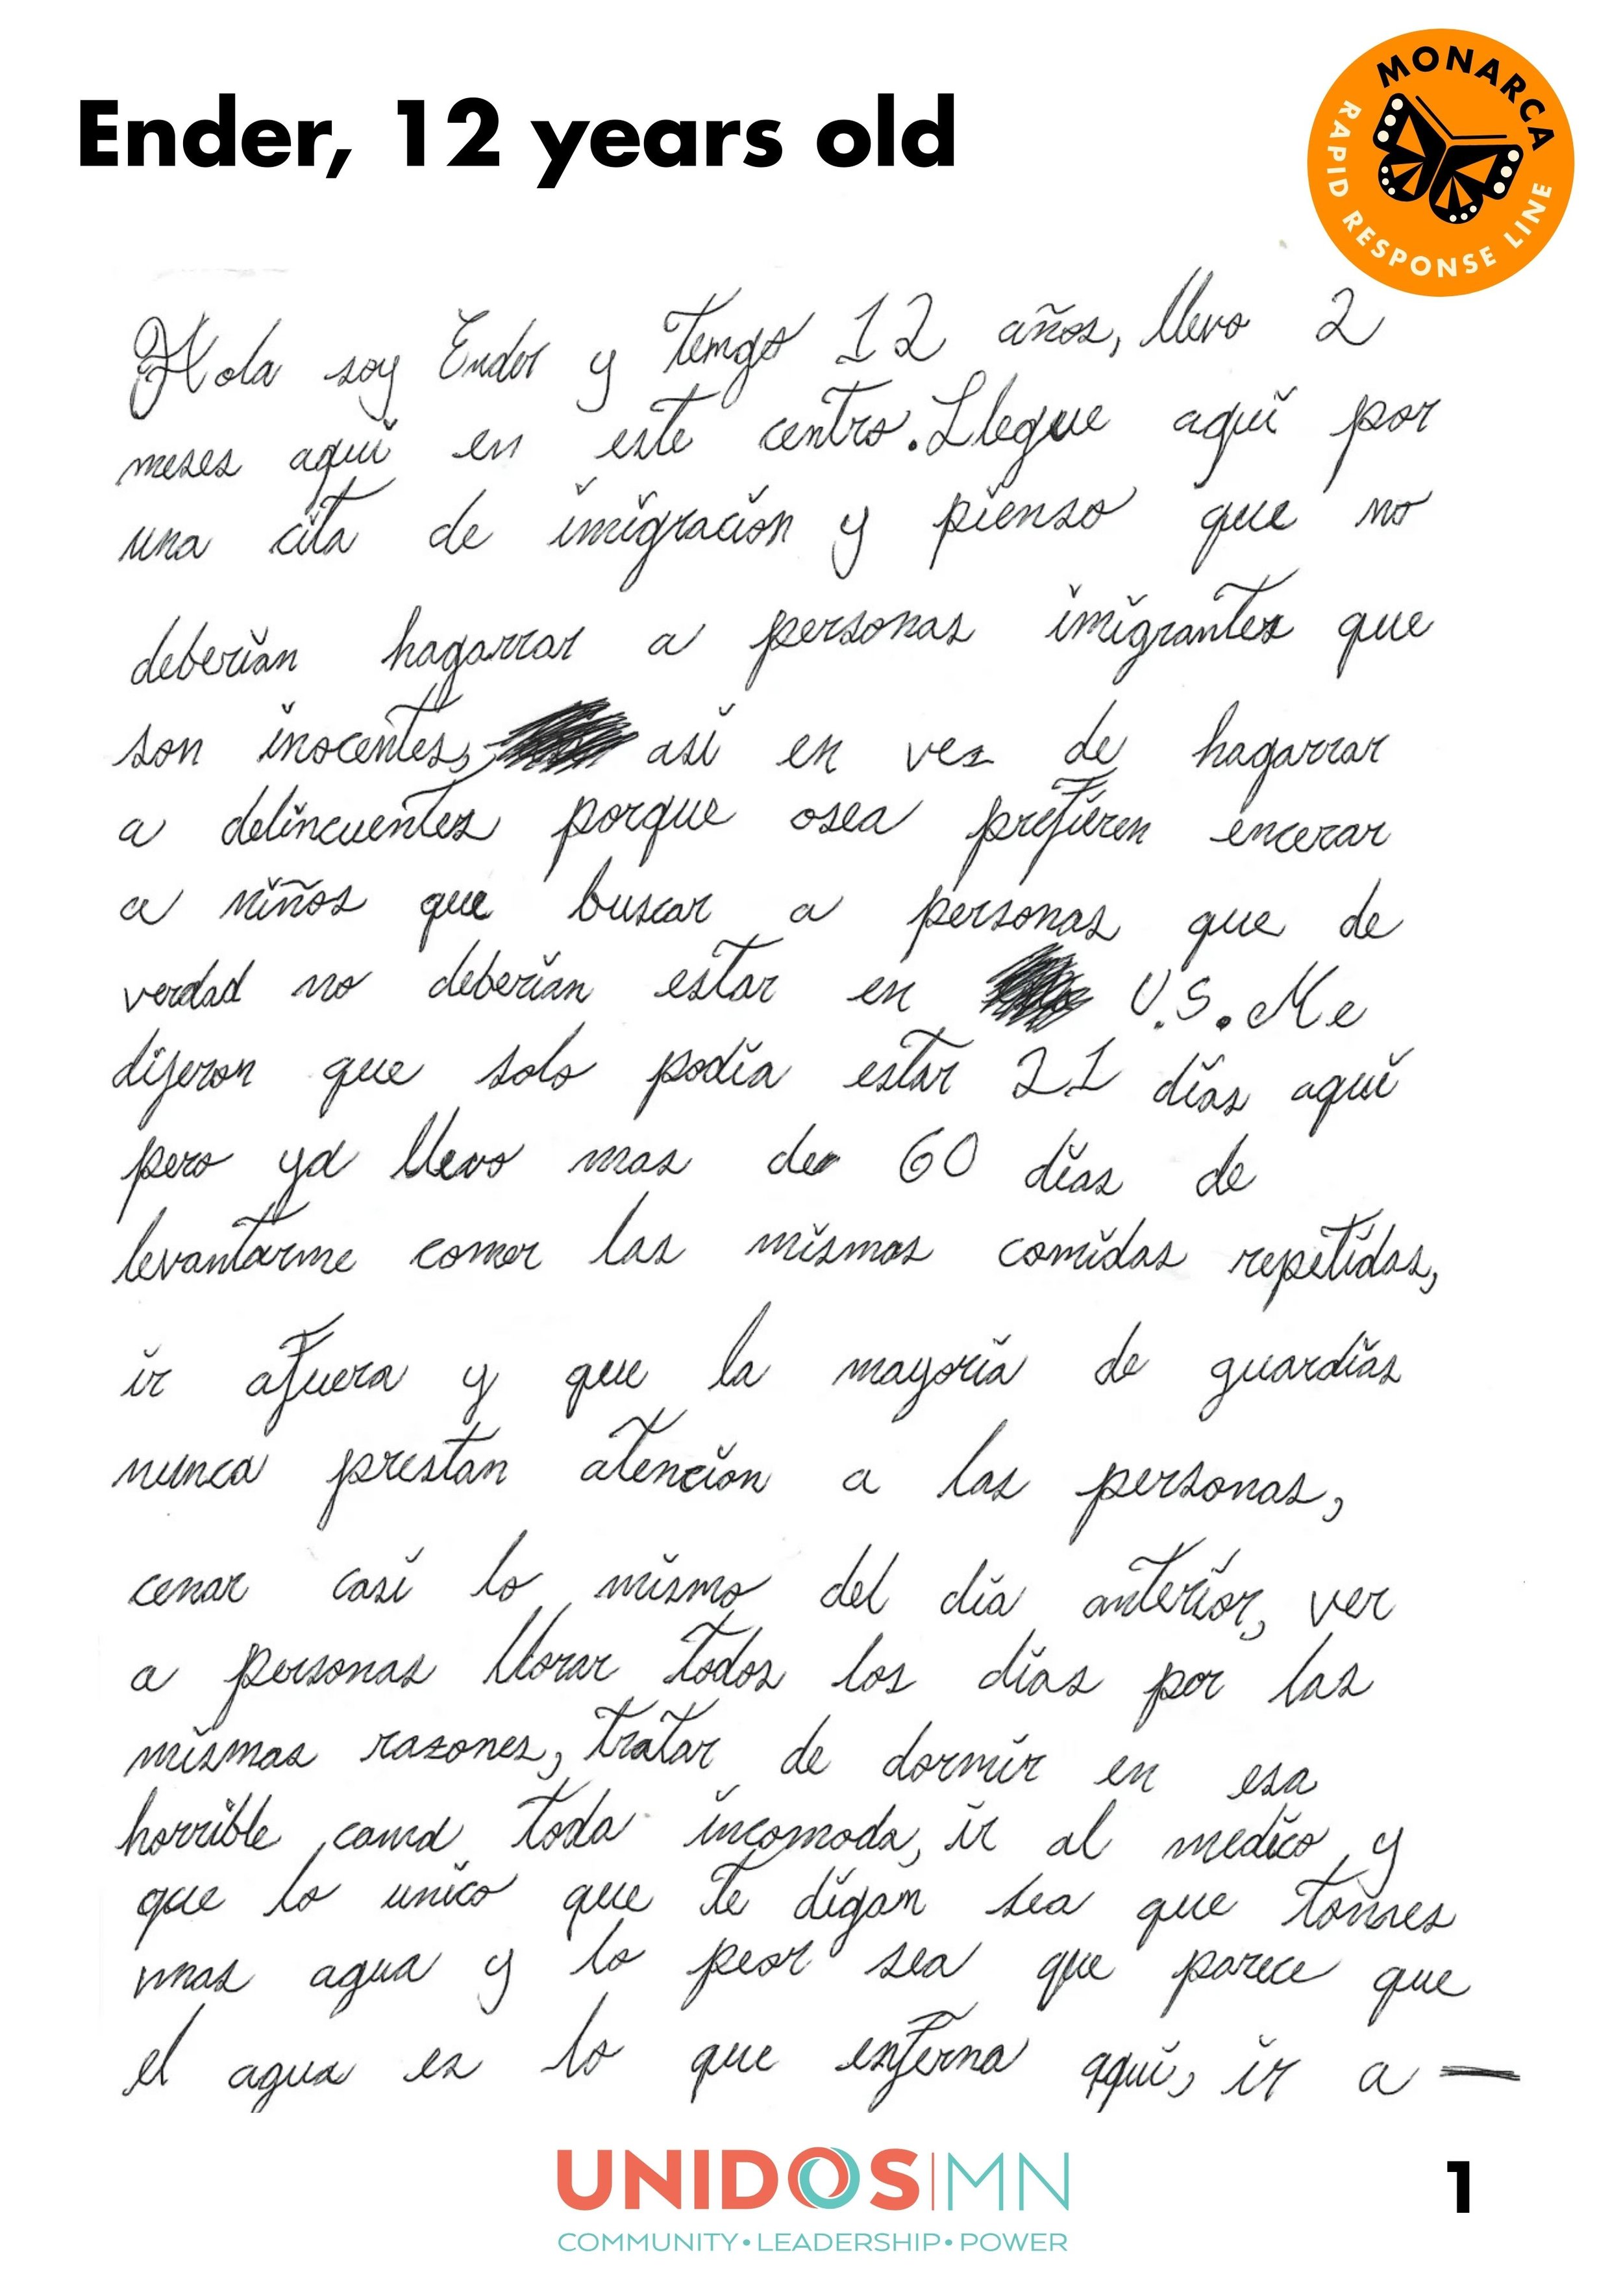 Ender, 12 years old
MONARCA
RAPID RESPONSE LINE
Hola soy Ender y tengo 12 años, llevo 2
meses aqui en este centro. Llegue aqui por
una cita de imigracion y pienso que no
deberian hagarrar a personas imigrantes que
son inocentes, asi en vez de hagarrar
a delincuentes porque osea prefieren encerar
a niños que buscar a personas que de
verdad no deberian estar en U.S. Me
dijeron que solo podia estar 21 dias aqui
pero ya llevo mas de 60 dias de
levantarme comer las mismas comidas repetidas,
ir afuera y que la mayoria de guardias
nunca prestan atencion a las personas,
cenar casi lo mismo del dia anterior, ver
a personas llorar todos los dias por las
mismas razones, tratar de dormir en esa
horrible cama toda incomoda, ir al medico y
que lo unico que te digan sea que tomes
mas agua y lo peor sea que parece que
el agua es lo que enferma aqui, ir a
UNIDOS|MN
COMMUNITY•LEADERSHIP•POWER
1